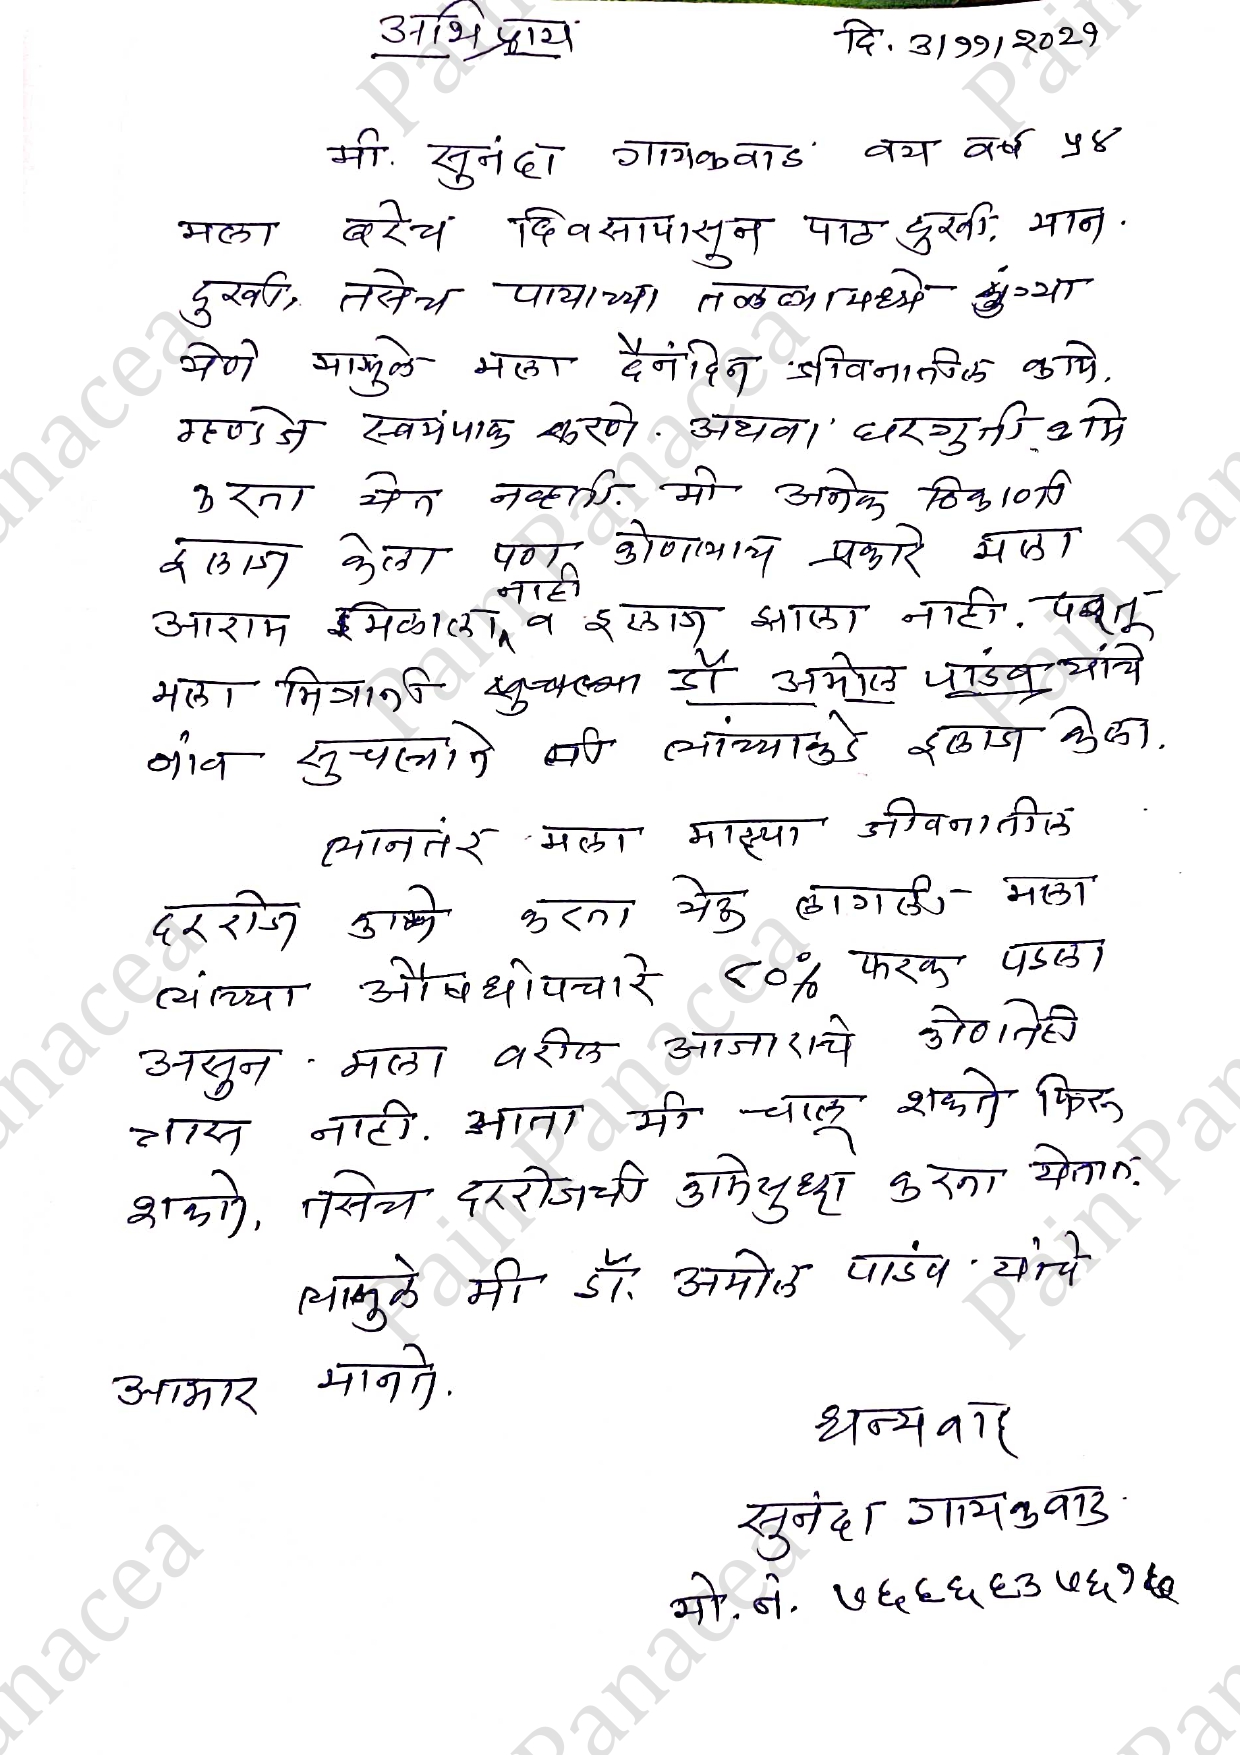 अभिप्राय
दि. ३/११/२०२१
मी. सुनंदा गायकवाड वय वर्ष ५४
मला बरेच दिवसापासुन पाठ दुखी, मान
दुखी, तसेच पायाच्या तळव्यामध्ये मुंग्या
येणे यामुळे मला दैनंदिन जीवनातील कामे,
म्हणजे स्वयंपाक करणे. अथवा घरगुती कामे
करता येत नव्हती. मी अनेक ठिकाणी
इलाज केला पण कोणत्याच प्रकारे मला
आराम मिळाला नाही व इलाज झाला नाही. परंतू
मला मित्रानी डॉ अमोल पांडव यांचे
नांव सुचवल्याने मी त्यांच्याकडे इलाज केला.
त्यानतंर मला माझ्या जीवनातील
दररोज कामे करता येऊ लागली मला
त्यांच्या औषधोपचारे ८०% फरक पडला
असुन मला वरील आजाराचे कोणतेही
त्रास नाही. आता मी चालू शकते फिरू
शकते, तसेच दररोजची कामेसुध्दा करता येतात.
त्यामुळे मी डॉ. अमोल पांडव यांचे
आभार मानते.
धन्यवाद
सुनंदा गायकवाड
मो. नं.
Pain Panacea
Pain Panacea
Pain Panacea
Pain Panacea